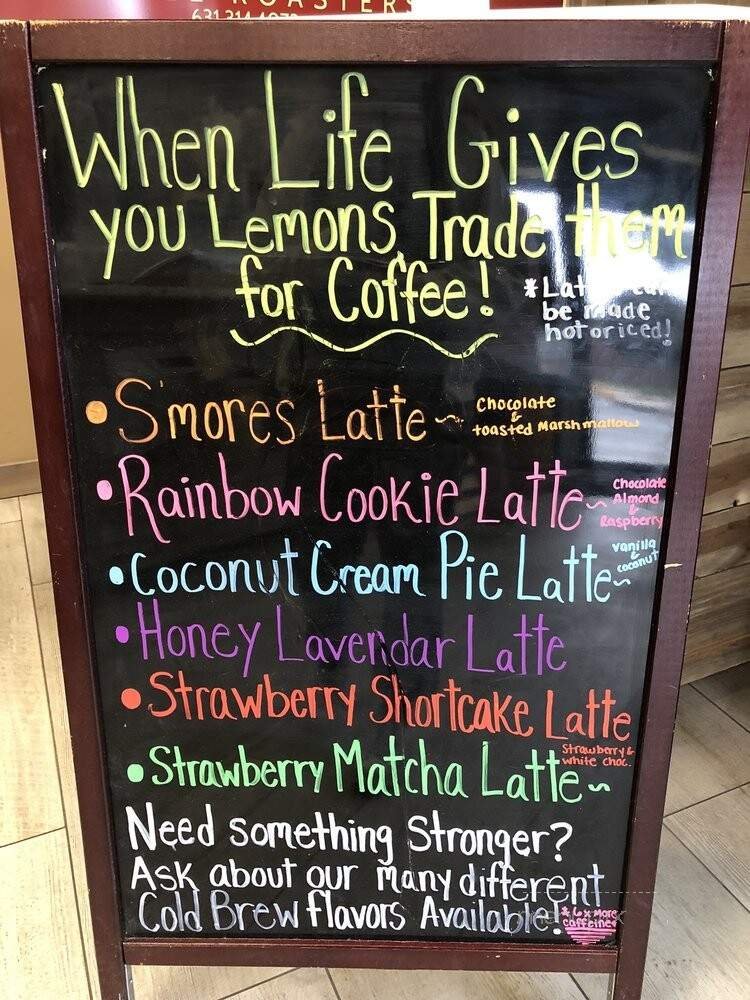 ROASTERS
When Life Gives
you Lemons, Trade them
for Coffee!
*Lat
be made
hot or iced!
• S'mores Latte ~ Chocolate
&
toasted Marshmallow
• Rainbow Cookie Latte ~ Chocolate
Almond
&
Raspberry
• Coconut Cream Pie Latte ~ vanilla
&
coconut
• Honey Lavendar Latte
• Strawberry Shortcake Latte
Strawberry &
white choc.
• Strawberry Matcha Latte ~
Need something Stronger?
Ask about our many different
Cold Brew flavors Available!
* 6x More
caffeine*